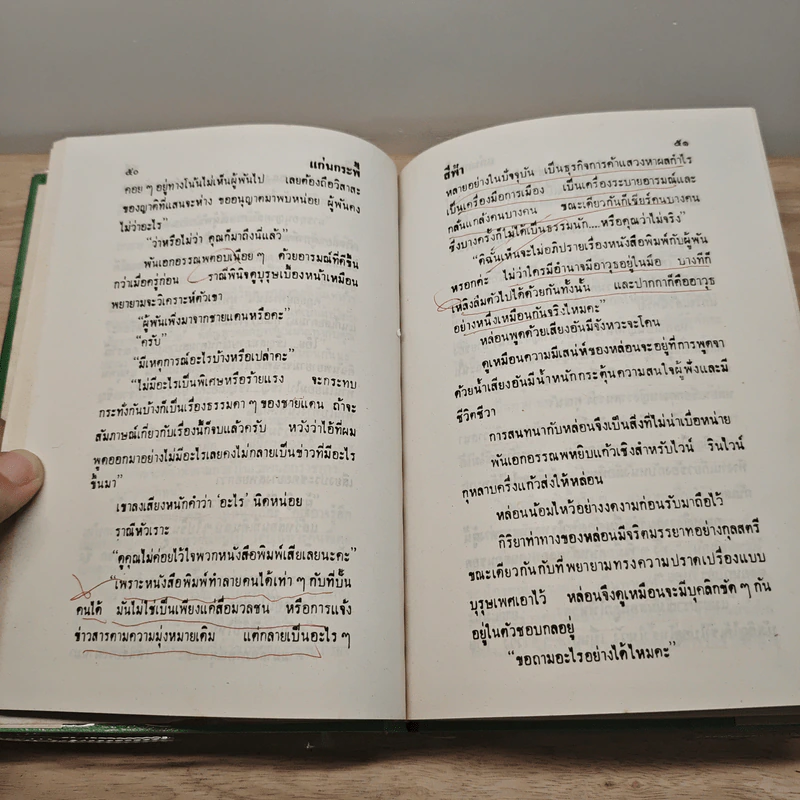 ๕๐ แก่นกระพี้
คอย ๆ อยู่ทางโน้นไม่เห็นผู้พันไป เลยต้องถือวิสาสะ
ของญาติที่แสนจะห่าง ขออนุญาตมาพบหน่อย ผู้พันคง
ไม่ว่าอะไร”
“ว่าหรือไม่ว่า คุณก็มาถึงนี่แล้ว”
พันเอกอรรณพตอบเนือย ๆ ด้วยอารมณ์ที่ดีขึ้น
กว่าเมื่อครู่ก่อน ราณีพินิจดูบุรุษเบื้องหน้าเหมือน
พยายามจะวิเคราะห์ตัวเขา
“ผู้พันเพิ่งมาจากชายแดนหรือคะ”
“ครับ”
“มีเหตุการณ์อะไรบ้างหรือเปล่าคะ”
“ไม่มีอะไรเป็นพิเศษหรือร้ายแรง จะกระทบ
กระทั่งกันบ้างก็เป็นเรื่องธรรมดา ๆ ของชายแดน ถ้าจะ
สัมภาษณ์เกี่ยวกับเรื่องนี้ก็จบแล้วครับ หวังว่าไอ้ที่ผม
พูดออกมาอย่างไม่มีอะไรเลยคงไม่กลายเป็นข่าวที่มีอะไร
ขึ้นมา”
เขาลงเสียงหนักคำว่า ‘อะไร’ นิดหน่อย
ราณีหัวเราะ
“ดูคุณไม่ค่อยไว้ใจพวกหนังสือพิมพ์เสียเลยนะคะ”
“เพราะหนังสือพิมพ์ทำลายคนได้เท่า ๆ กับที่ปั้น
คนได้ มันไม่ใช่เป็นเพียงแค่สื่อมวลชน หรือการแจ้ง
ข่าวสารตามความมุ่งหมายเดิม แต่กลายเป็นอะไร ๆ
สีฟ้า ๕๑
หลายอย่างในปัจจุบัน เป็นธุรกิจการค้าแสวงหาผลกำไร
เป็นเครื่องมือการเมือง เป็นเครื่องระบายอารมณ์และ
กลั่นแกล้งคนบางคน ขณะเดียวกันก็เชียร์คนบางคน
ซึ่งบางครั้งก็ไม่ได้เป็นธรรมนัก....หรือคุณว่าไม่จริง”
“ดิฉันเห็นจะไม่อภิปรายเรื่องหนังสือพิมพ์กับผู้พัน
หรอกค่ะ ไม่ว่าใครมีอำนาจมีอาวุธอยู่ในมือ บางทีก็
เหลิงลืมตัวไปได้ด้วยกันทั้งนั้น และปากกาก็คืออาวุธ
อย่างหนึ่งเหมือนกันจริงไหมคะ”
หล่อนพูดด้วยเสียงอันมีจังหวะจะโคน
ดูเหมือนความมีเสน่ห์ของหล่อนจะอยู่ที่การพูดจา
ด้วยน้ำเสียงอันมีน้ำหนักกระตุ้นความสนใจผู้ฟังและมี
ชีวิตชีวา
การสนทนากับหล่อนจึงเป็นสิ่งที่ไม่น่าเบื่อหน่าย
พันเอกอรรณพหยิบแก้วเชิงสำหรับไวน์ รินไวน์
กุหลาบครึ่งแก้วส่งให้หล่อน
หล่อนน้อมไหว้อย่างงดงามก่อนรับมาถือไว้
กิริยาท่าทางของหล่อนมีจริตมรรยาทอย่างกุลสตรี
ขณะเดียวกันกับที่พยายามทรงความปราดเปรื่องแบบ
บุรุษเพศเอาไว้ หล่อนจึงดูเหมือนจะมีบุคลิกขัด ๆ กัน
อยู่ในตัวชอบกลอยู่
“ขอถามอะไรอย่างได้ไหมคะ”